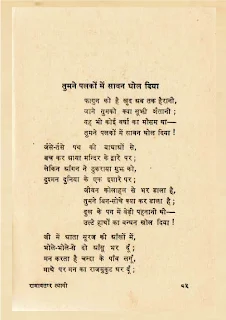 तुमने पलकों में सावन घोल दिया
फागुन को है खुद अब तक हैरानी,
जाने तुमको क्या सूझी शैतानी;
यह भी कोई वर्षा का मौसम था—
तुमने पलकों में सावन घोल दिया !
जैसे-तैसे पथ की बाधाओं से,
बच कर आया मन्दिर के द्वारे पर;
लेकिन आँगन ने ठुकराया मुझ को,
दुश्मन दुनिया के एक इशारे पर;
जीवन कोलाहल से भर डाला है,
तुमने बिन-सोचे क्या कर डाला है;
दुख के पग में बेड़ी पहनानी थी—
उल्टे हाथों का बन्धन खोल दिया !
जी में आता सूरज की आँखों में,
भोले-भोले-से दो आँसू भर दूँ;
मन करता है चन्दा के पाँव लगूँ,
माथे पर मन का राजमुकुट धर दूँ;
रामावतार त्यागी
८५